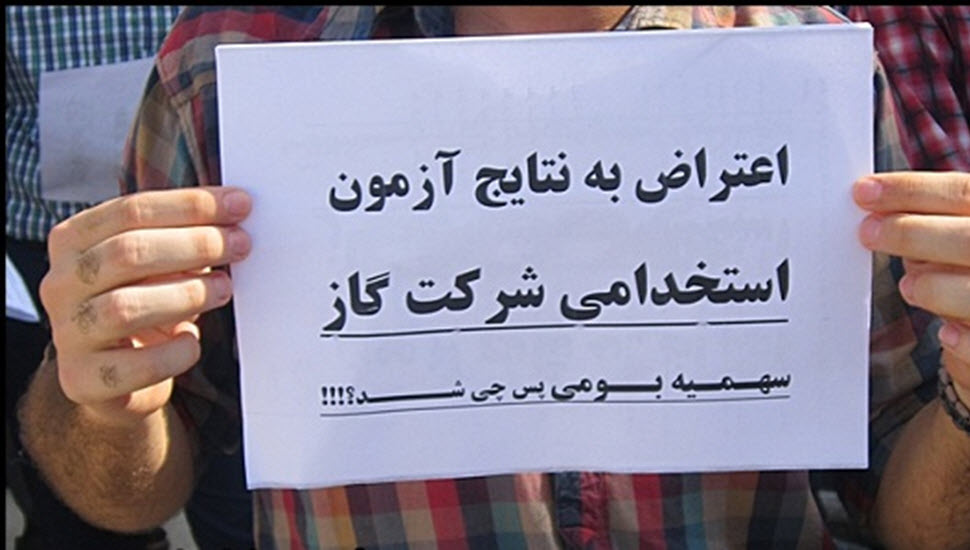 اعتراض به نتایج آزمون
استخدامی شرکت گاز
سهمیه بومی پس چی شد؟!!!